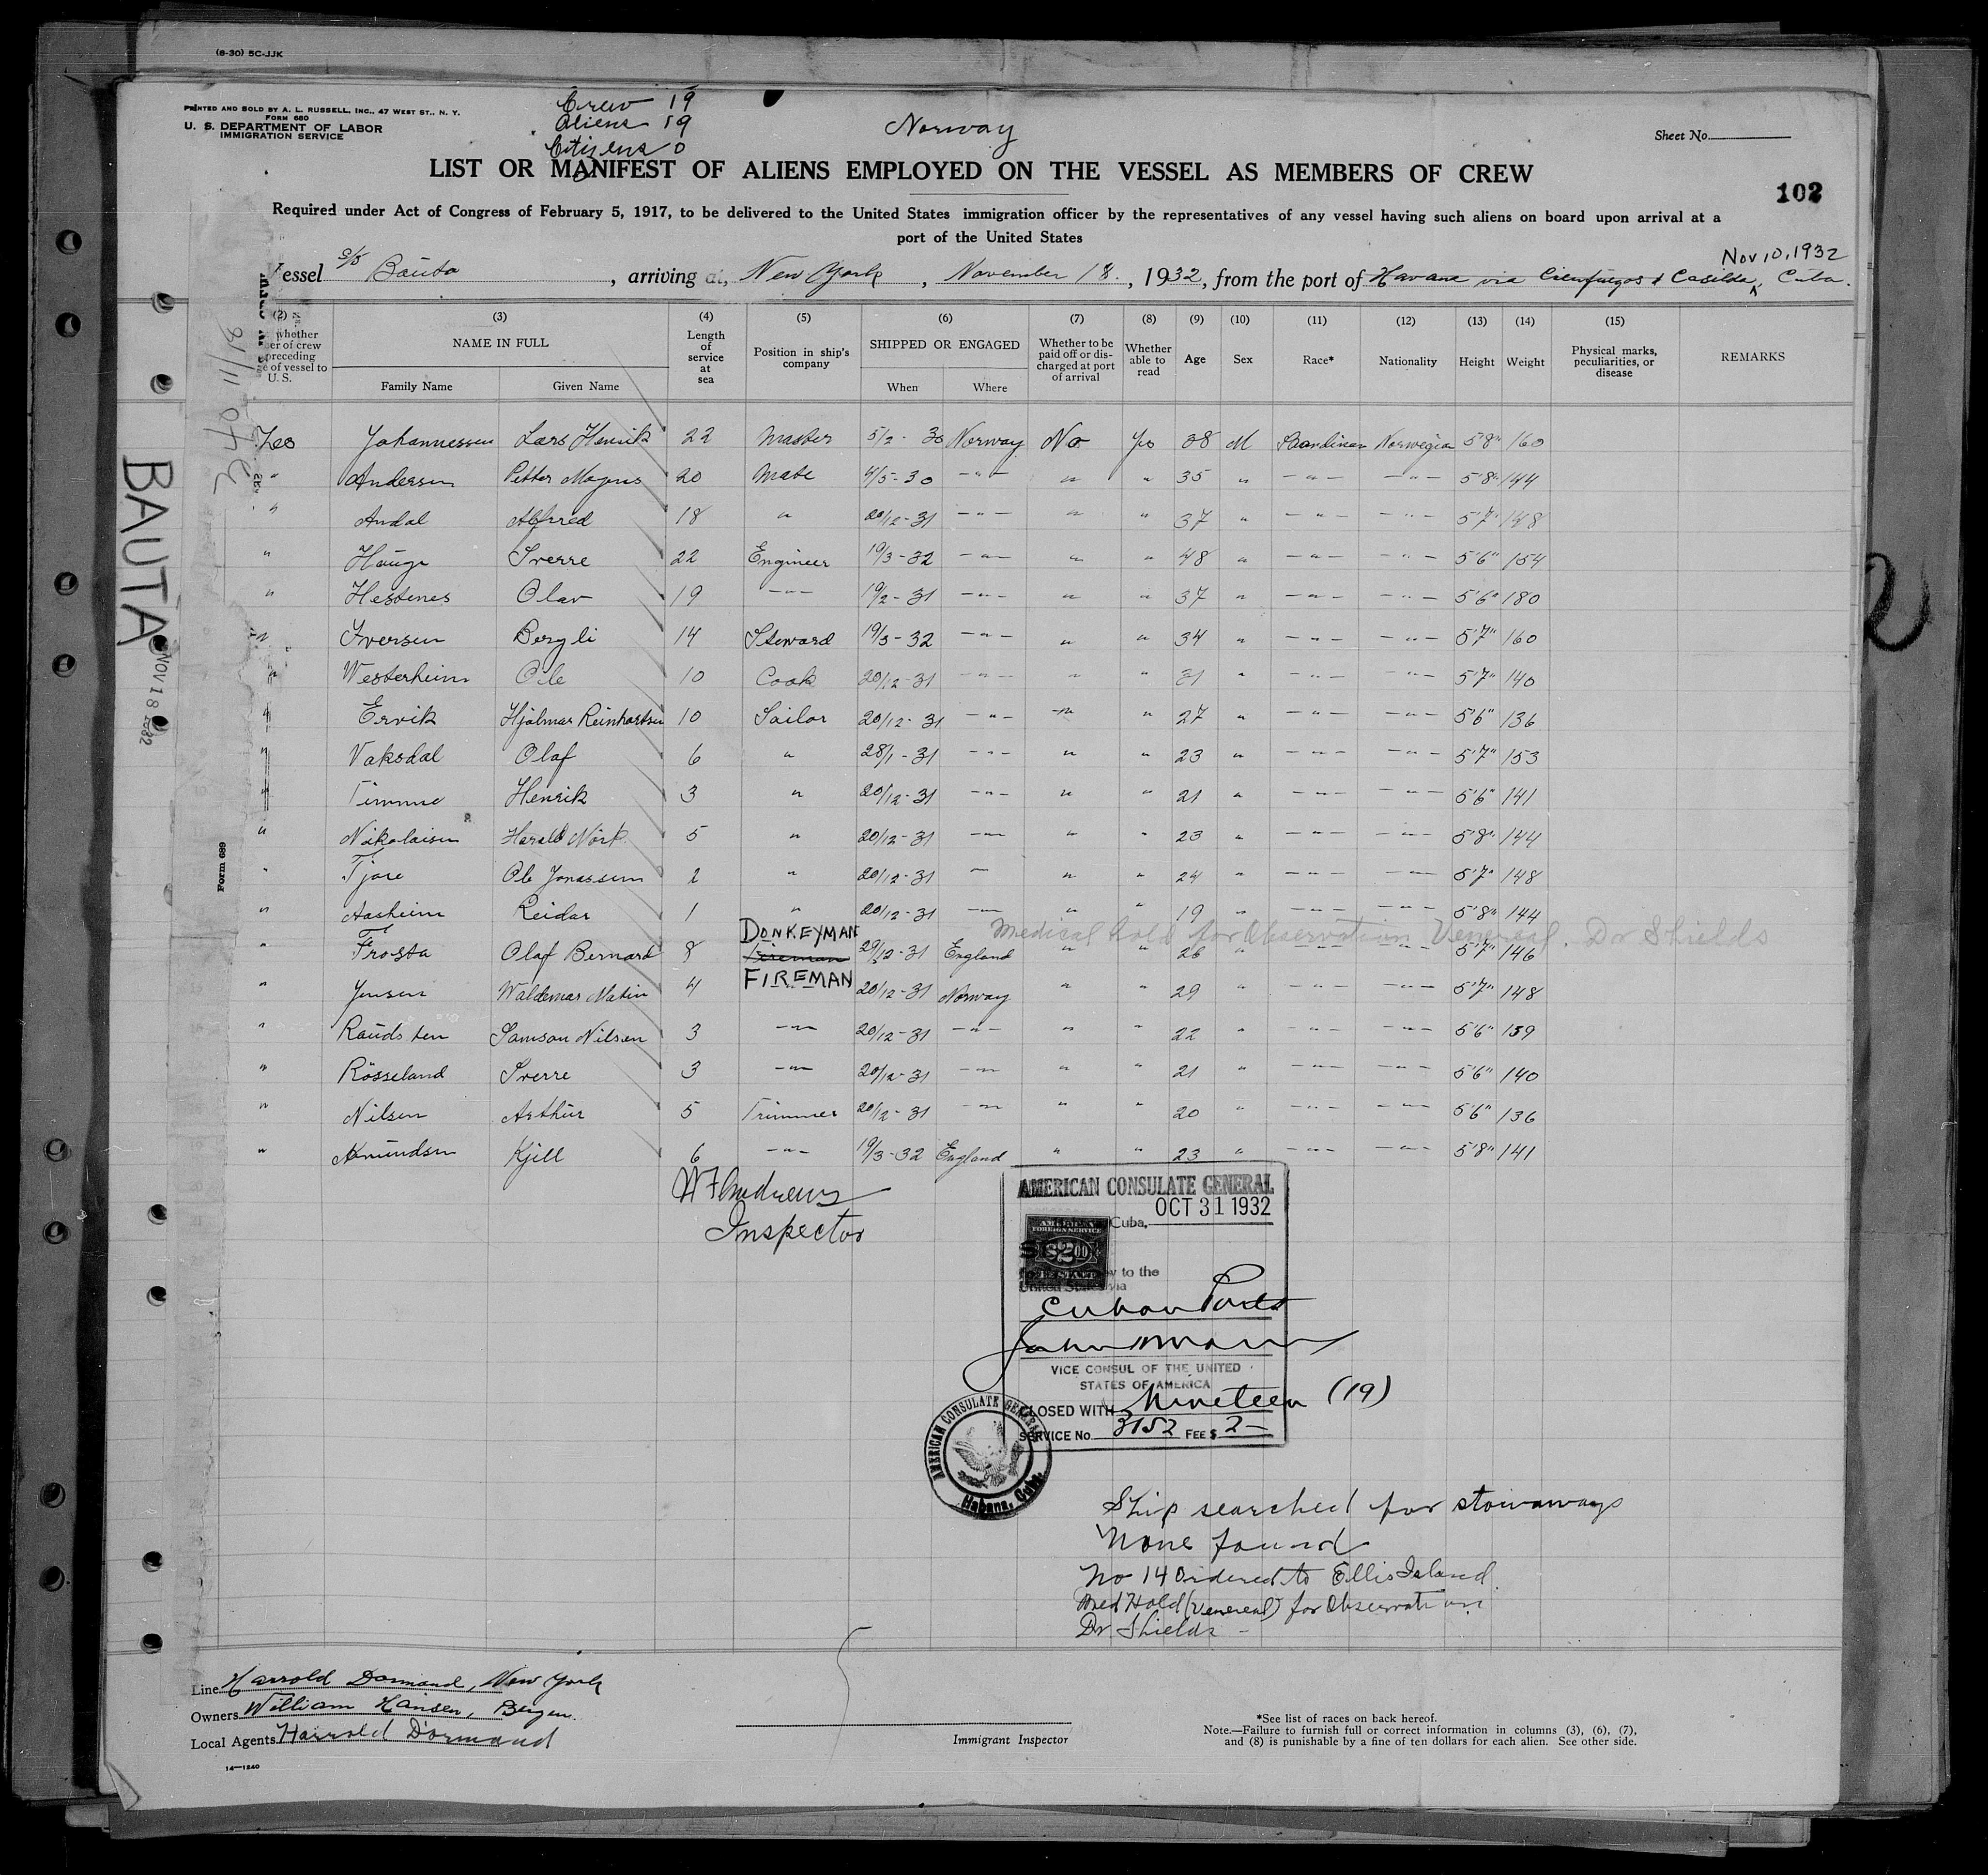 (8-30) 5C-JJK
PRINTED AND SOLD BY A. L. RUSSELL, INC., 47 WEST ST., N. Y.
FORM 680
U. S. DEPARTMENT OF LABOR
IMMIGRATION SERVICE
Crew 19
Aliens 19
Citizens 0
Norway
Sheet No.
LIST OR MANIFEST OF ALIENS EMPLOYED ON THE VESSEL AS MEMBERS OF CREW
102
Required under Act of Congress of February 5, 1917, to be delivered to the United States immigration officer by the representatives of any vessel having such aliens on board upon arrival at a
port of the United States
Nov 10, 1932
Vessel S/S Bauta, arriving at, New York, November 18, 1932, from the port of Havana via Cienfuegos & Casilda, Cuba.
(2) (3) (4) (5) (6) (7) (8) (9) (10) (11) (12) (13) (14) (15)
whether er of crew preceding e of vessel to U.S.
NAME IN FULL
Family Name
Given Name
Length of service at sea
Position in ship's company
SHIPPED OR ENGAGED
When
Where
Whether to be paid off or discharged at port of arrival
Whether able to read
Age
Sex
Race*
Nationality
Height
Weight
Physical marks, peculiarities, or disease
REMARKS
Yes Johannessen Lars Henrik 22 Master 5/2 - 30 Norway No Yes 38 M Scandinav Norwegian 5'8" 160
" Andersen Petter Magnus 20 Mate 4/5-30 -"- " " 35 " -"- -"- 5'8" 144
" Andal Alfred 18 " 20/12-31 -"- " " 37 " -"- -"- 5'7" 148
" Hauge Sverre 22 Engineer 19/3-32 -"- " " 48 " -"- -"- 5'6" 154
" Hestenes Olav 19 -"- 19/2-31 -"- " " 37 " -"- -"- 5'6" 180
" Iversen Bergli 14 Steward 19/3-32 -"- " " 34 " -"- -"- 5'7" 160
" Westerheim Ole 10 Cook 20/12-31 -"- " " 21 " -"- -"- 5'7" 140
" Ervik Hjalmar Reinhartsen 10 Sailor 20/12-31 -"- " " 27 " -"- -"- 5'6" 136
" Vaksdal Olaf 6 " 28/1-31 -"- " " 23 " -"- -"- 5'7" 153
" Timme Henrik 3 " 20/12-31 -"- " " 21 " -"- -"- 5'6" 141
" Nikolaisen Harald Nörk 5 " 20/12-31 -"- " " 23 " -"- -"- 5'8" 144
" Tjore Ole Jonassen 2 " 20/12-31 - " " 24 " -"- -"- 5'7" 148
" Aasheim Reidar 1 " 20/12-31 -"- " " 19 " -"- -"- 5'8" 144
DONKEYMAN
Medical hold for Observation Venereal. Dr Shields
" Frosta Olaf Bernard 8 Fireman 29/12-31 England " " 26 " -"- -"- 5'7" 146
FIREMAN
" Jensen Waldemar Matin 4 20/12-31 Norway " " 29 " -"- -"- 5'7" 148
" Raudsten Samson Nilsen 3 -"- 20/12-31 -"- " " 22 " -"- -"- 5'6" 139
" Rösseland Sverre 3 -"- 20/12-31 -"- " " 21 " -"- -"- 5'6" 140
" Nilsen Arthur 5 Trimmer 20/12-31 -"- " " 20 " -"- -"- 5'6" 136
" Amundsen Kjell 6 -"- 19/3-32 England " " 23 " -"- -"- 5'8" 141
W F Andrews
Inspector
AMERICAN CONSULATE GENERAL
OCT 31 1932
Cuba,
AMERICAN
FOREIGN SERVICE
to the
United States via
Cuban Ports
VICE CONSUL OF THE UNITED
STATES OF AMERICA
CLOSED WITH Nineteen (19)
SERVICE No. 3152 FEE $ 2-
AMERICAN CONSULATE GENERAL
Habana, Cuba.
Ship searched for stowaways
None found
No 14 Ordered to Ellis Island
Med Hold (venereal) for Observation
Dr. Shields -
Line Harrold Dormand, New York
Owners William Hansen, Bergen.
Local Agents Harrold Dormand
Immigrant Inspector
*See list of races on back hereof.
Note.—Failure to furnish full or correct information in columns (3), (6), (7),
and (8) is punishable by a fine of ten dollars for each alien. See other side.
14—1240
BAUTA
NOV 18 1932
Form 689